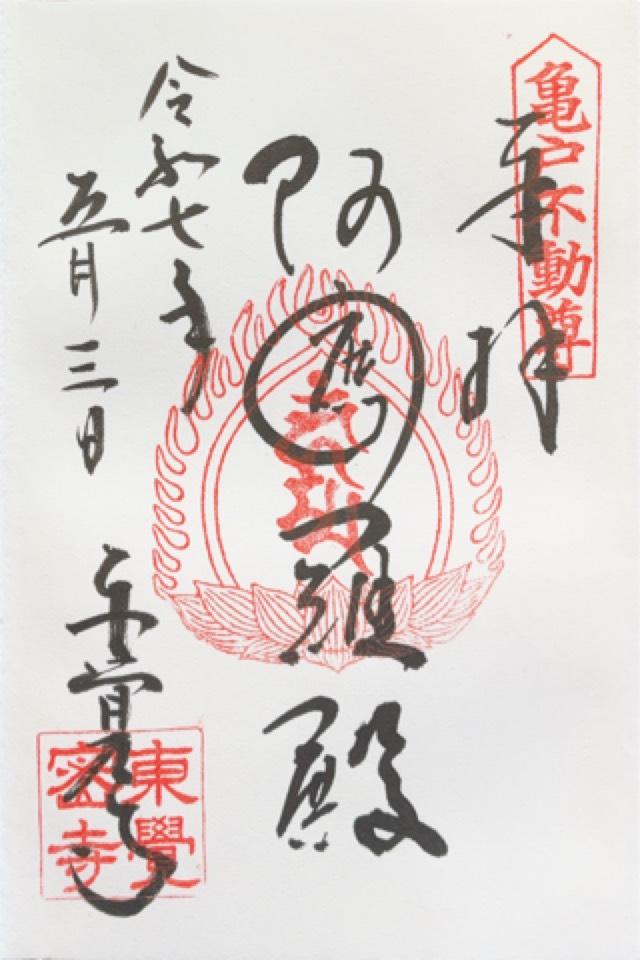 亀戸不動尊
奉拝
阿魔羅殿
令和七年
五月三日
東覺寺
東覺
密寺